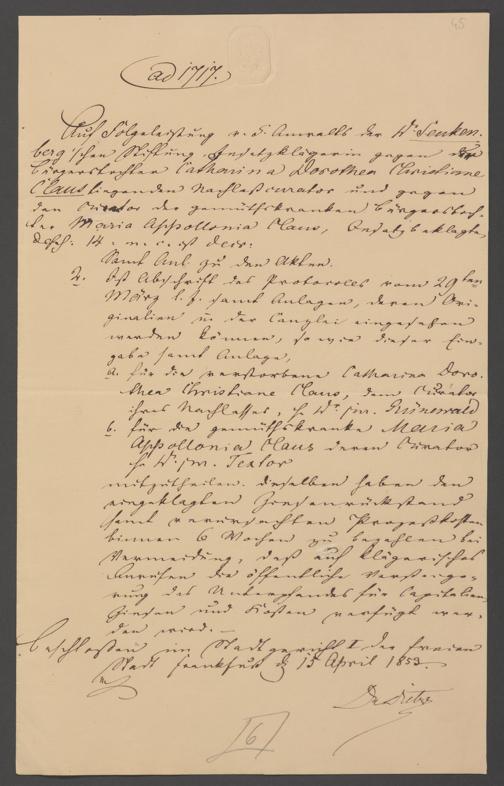 45
ad 1717.
Auf Folgeleistung v. S. Anwalts der Dr Senken-
berg'schen Stiftung, Insatzklägerin gegen die
Bürgerstochter Catharina Dorothea Christiane
Claus liegenden Nachlaßcurator und gegen
den Curator der gemüthskranken Bürgerstoch-
ter Maria Appollonia Claus, Insatzbeklagte,
14. n. c. ist decr:
Samt Anl. zu den Akten.
2. Ist Abschrift des Protocolles vom 29ten
März l. J. samt Anlagen, deren Ori-
ginalien in der Canzlei eingesehen
werden können, sowie dieser Ein-
gabe samt Anlage,
a. für die verstorbene Catharina Doro-
thea Christiane Claus, dem Curator
ihres Nachlasses, H. Dr. jur. Grünewald
b. für die gemüthskranke Maria
Appollonia Claus deren Curator
H. Dr. jur. Textor
mitzutheilen. Dieselben haben den
eingeklagten Zinsenrückstand
samt verursachten Prozeßkosten
binnen 6 Wochen zu bezahlen bei
Vermeidung, daß auf klägerisches
Anrufen die öffentliche Versteige-
rung des Unterpfandes für Capitalien,
Zinsen und Kosten verfügt wer-
den wird.
Beschlossen im Stadtgericht I der freien
Stadt Frankfurt d. 15 April 1853.
[6]